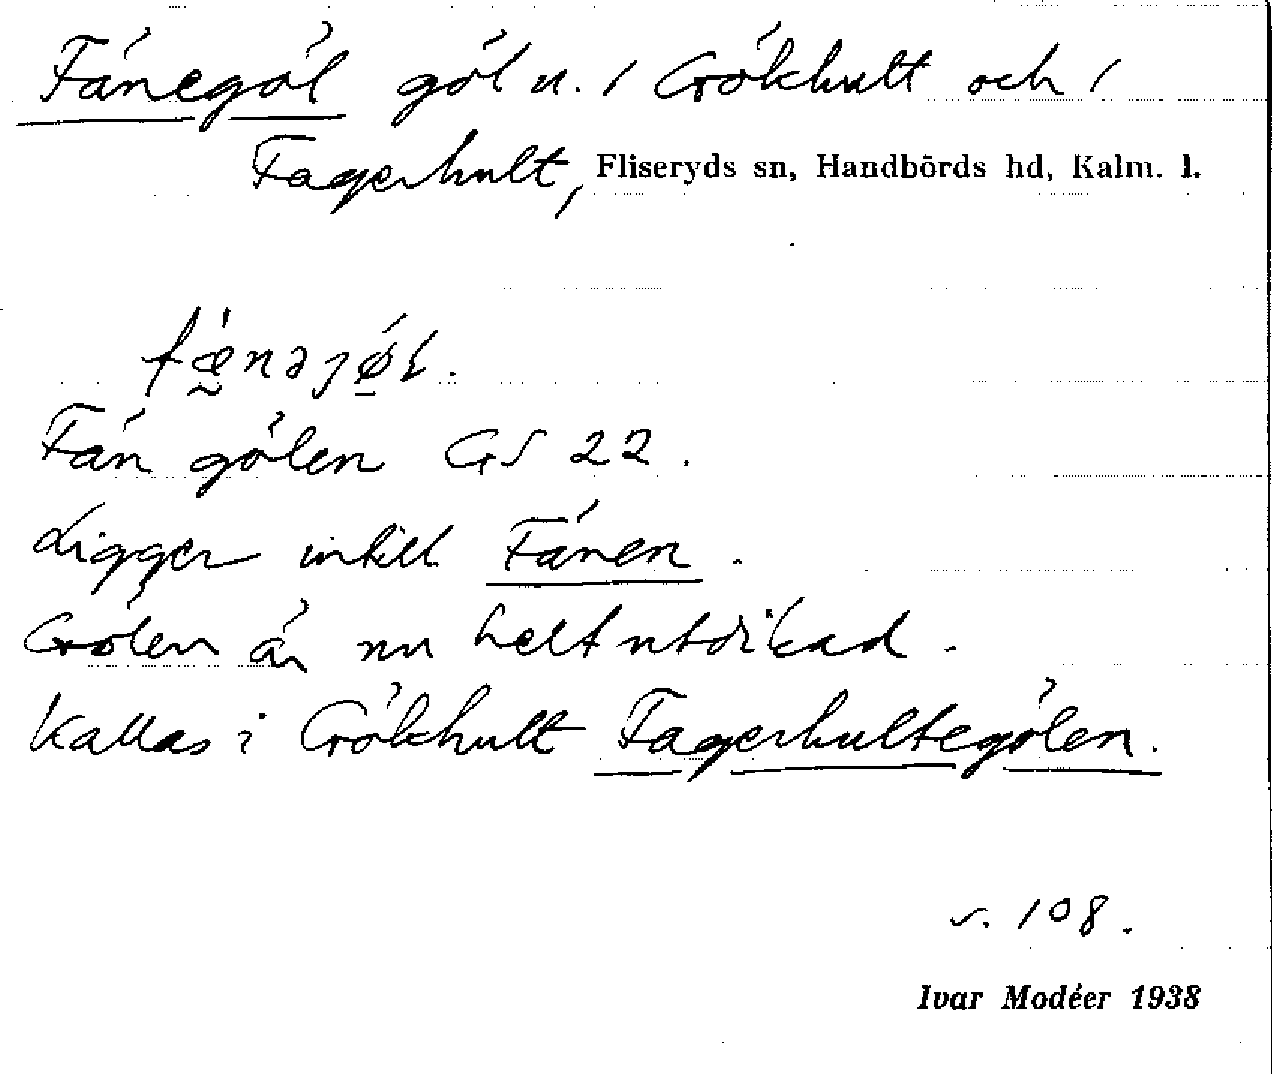 Fänegöl göl n. 1 Gökhult och 1
Fagerhult, Fliseryds sn, Handbörds hd, Kalm. l.
Fän gölen GS 22.
Ligger intill Fänen.
Gölen är nu helt utdikad.
Kallas i Gökhult Fagerhultegölen.
s. 108.
Ivar Modéer 1938